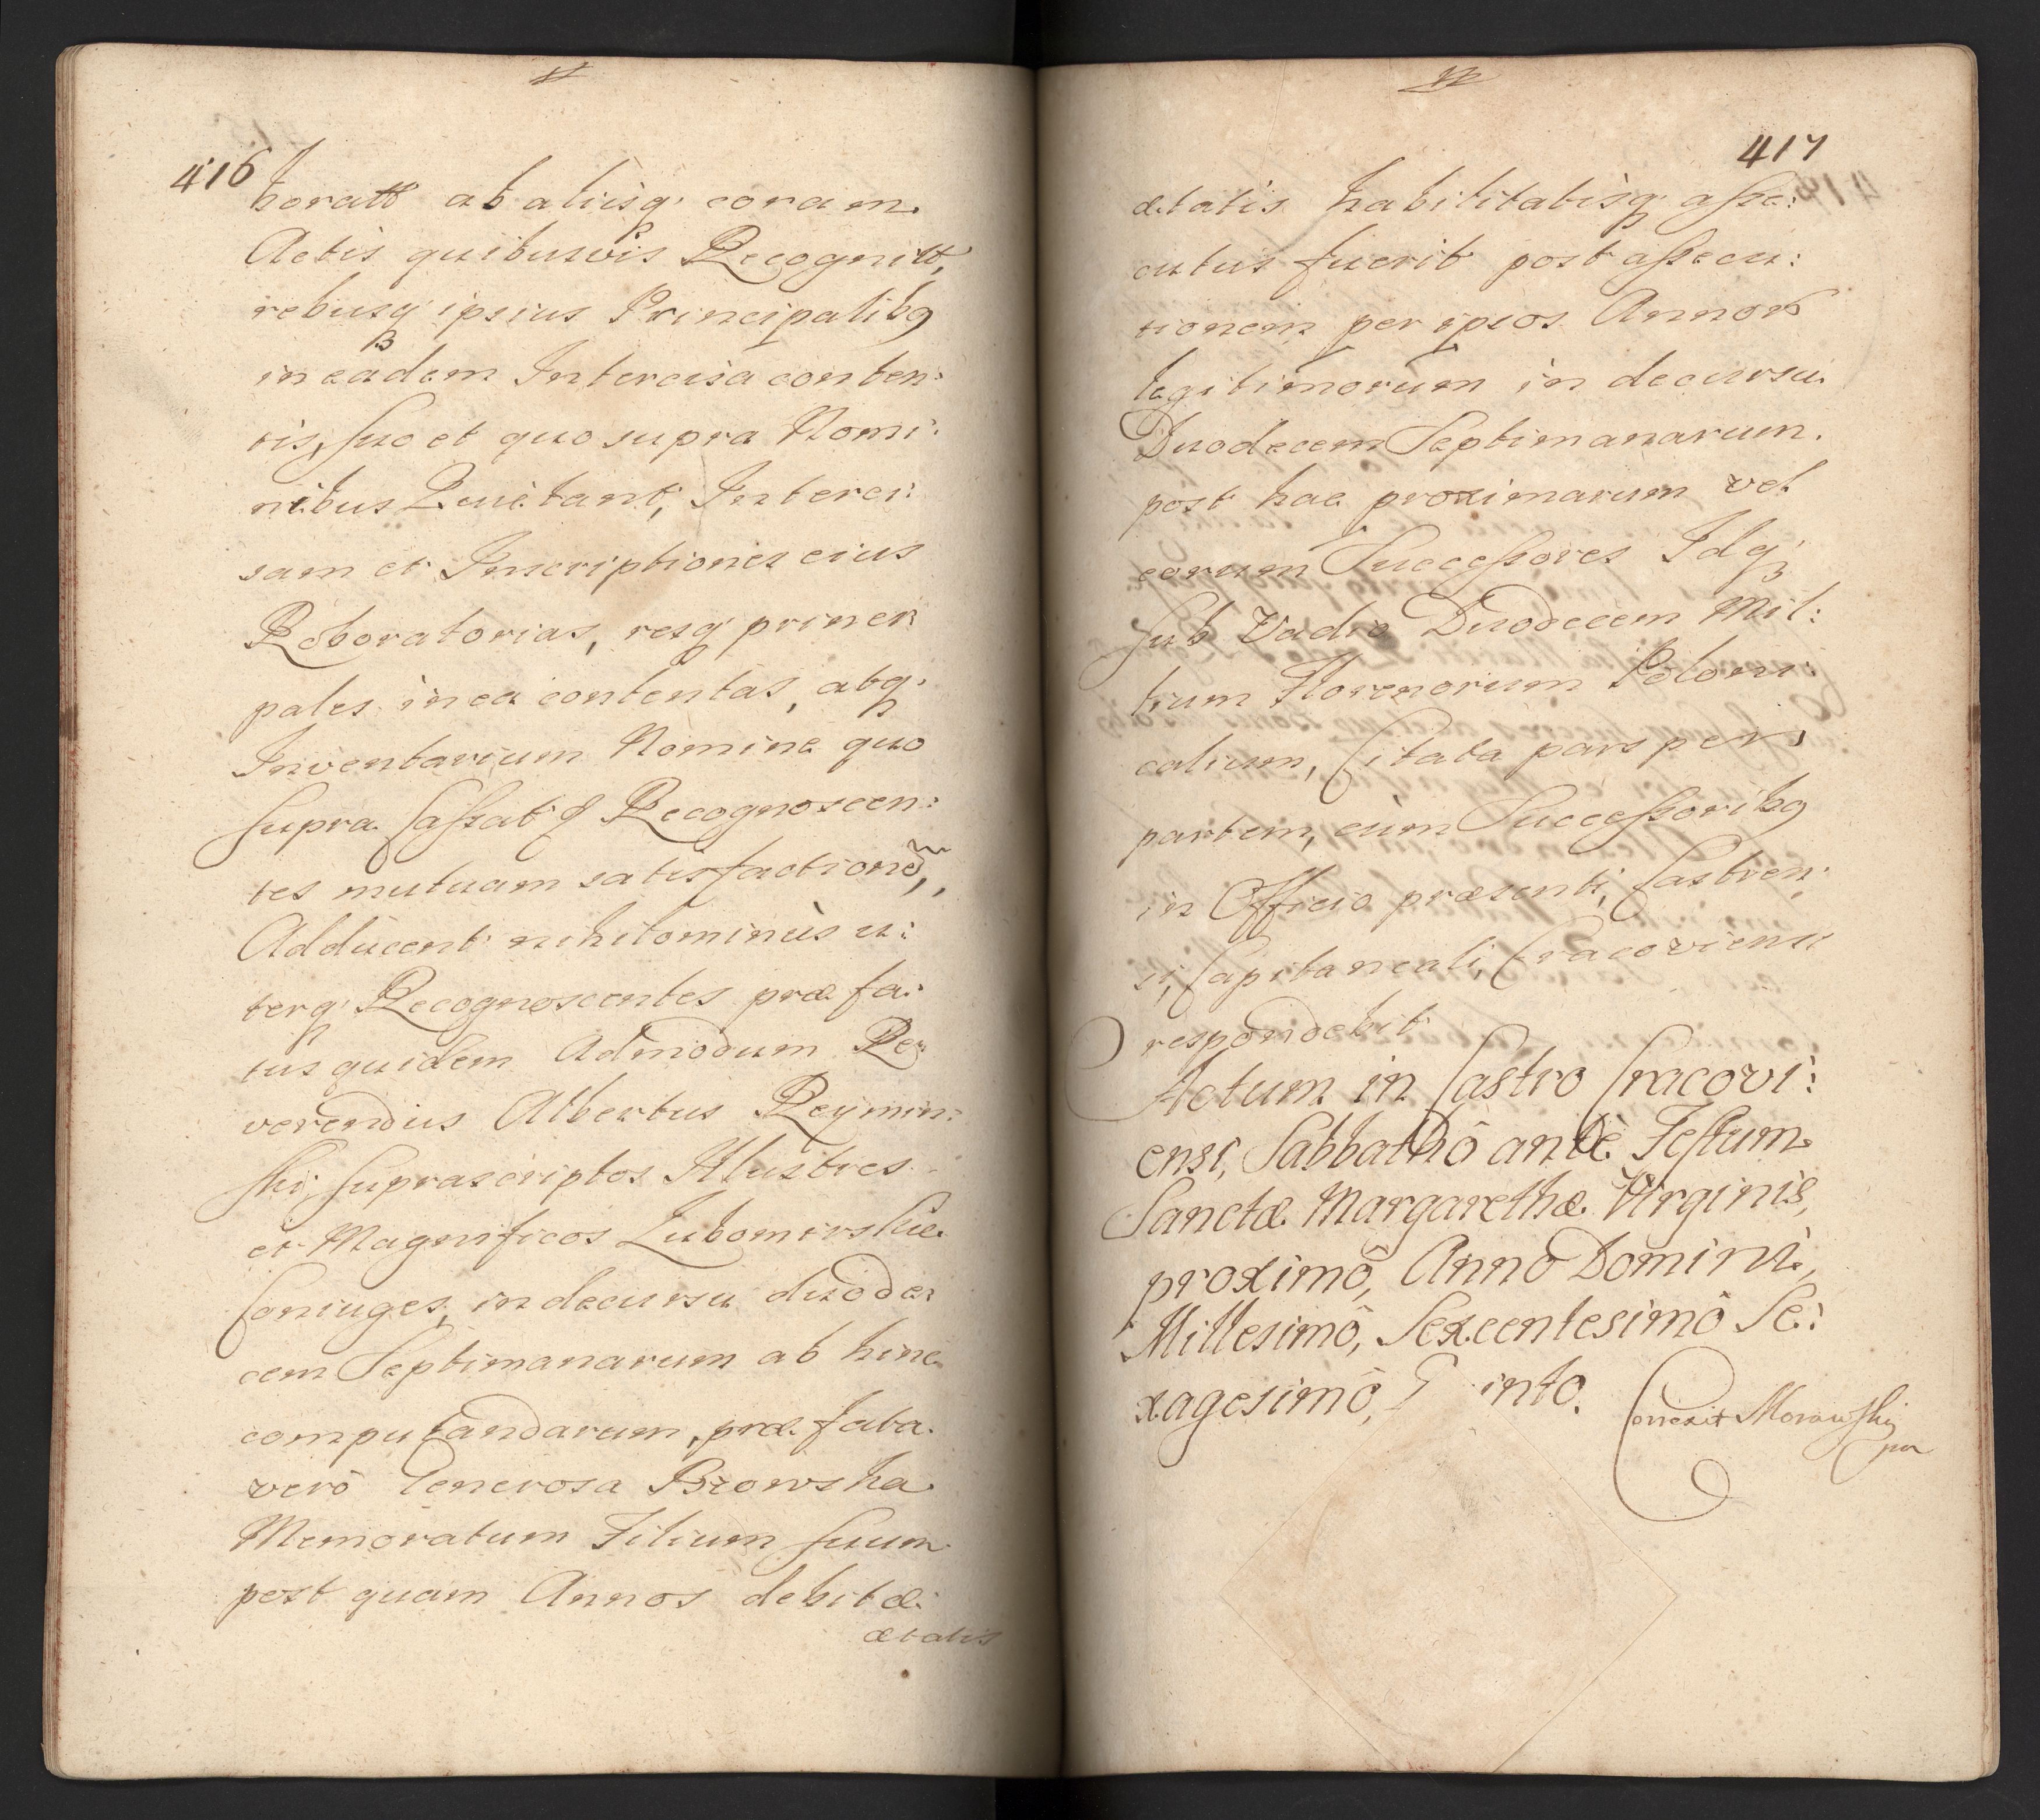 416
boratt ab alijsq; coram
Actis quibusvis Recognitt,
rebusq; ipsius Principalibꝯ
in eadem Intercisa conten:
tis, suo et quo supra Nomi:
nibus Quietant, Interci:
sam et Inscriptiones eius
Roboratorias, resq; princi:
pales in ea contentas, atq;
Inventarium Nomine quo
supra Cassat ꝑ Recognoscen:
tes mutuam satisfactionẽ,
Adducent nihilominùs u:
terq; Recognoscentes præfa:
tus quidem Admodum Re:
verendus Albertus Reymin:
ski, suprascriptos Illustres
et Magnificos Lubomirskie
Coniuges, in decursu duode:
cem Septimanarum ab hinc
computandarum, præfata
verò Generosa Brzowska
Memoratum Filium suum
post quam Annos debitæ
ætatis
417
ætatis habilitatisq; asse:
cutus fuerit post assecu:
tionem per ipsos Annorũ
legitimorum in decursu
Duodecem Septimanarum
post hac proximarum vel
eorum Successores Idq;
sub Vadio Duodecem Mil:
lium Florenorum Poloni:
calium, Citata pars per
partem, cùm Successoribꝯ
in Officio præsenti, Castren:
si, Capitaneali, Cracoviensi
respondebit
Actum in Castro Cracovi:
ensi, Sabbathô antè Festum
Sanctæ Margarethæ Virginis,
proximô, Anno Domini,
Millesimô, Sexcentesimô Se:
xagesimô, Q into.
Correxit Morawski
mp